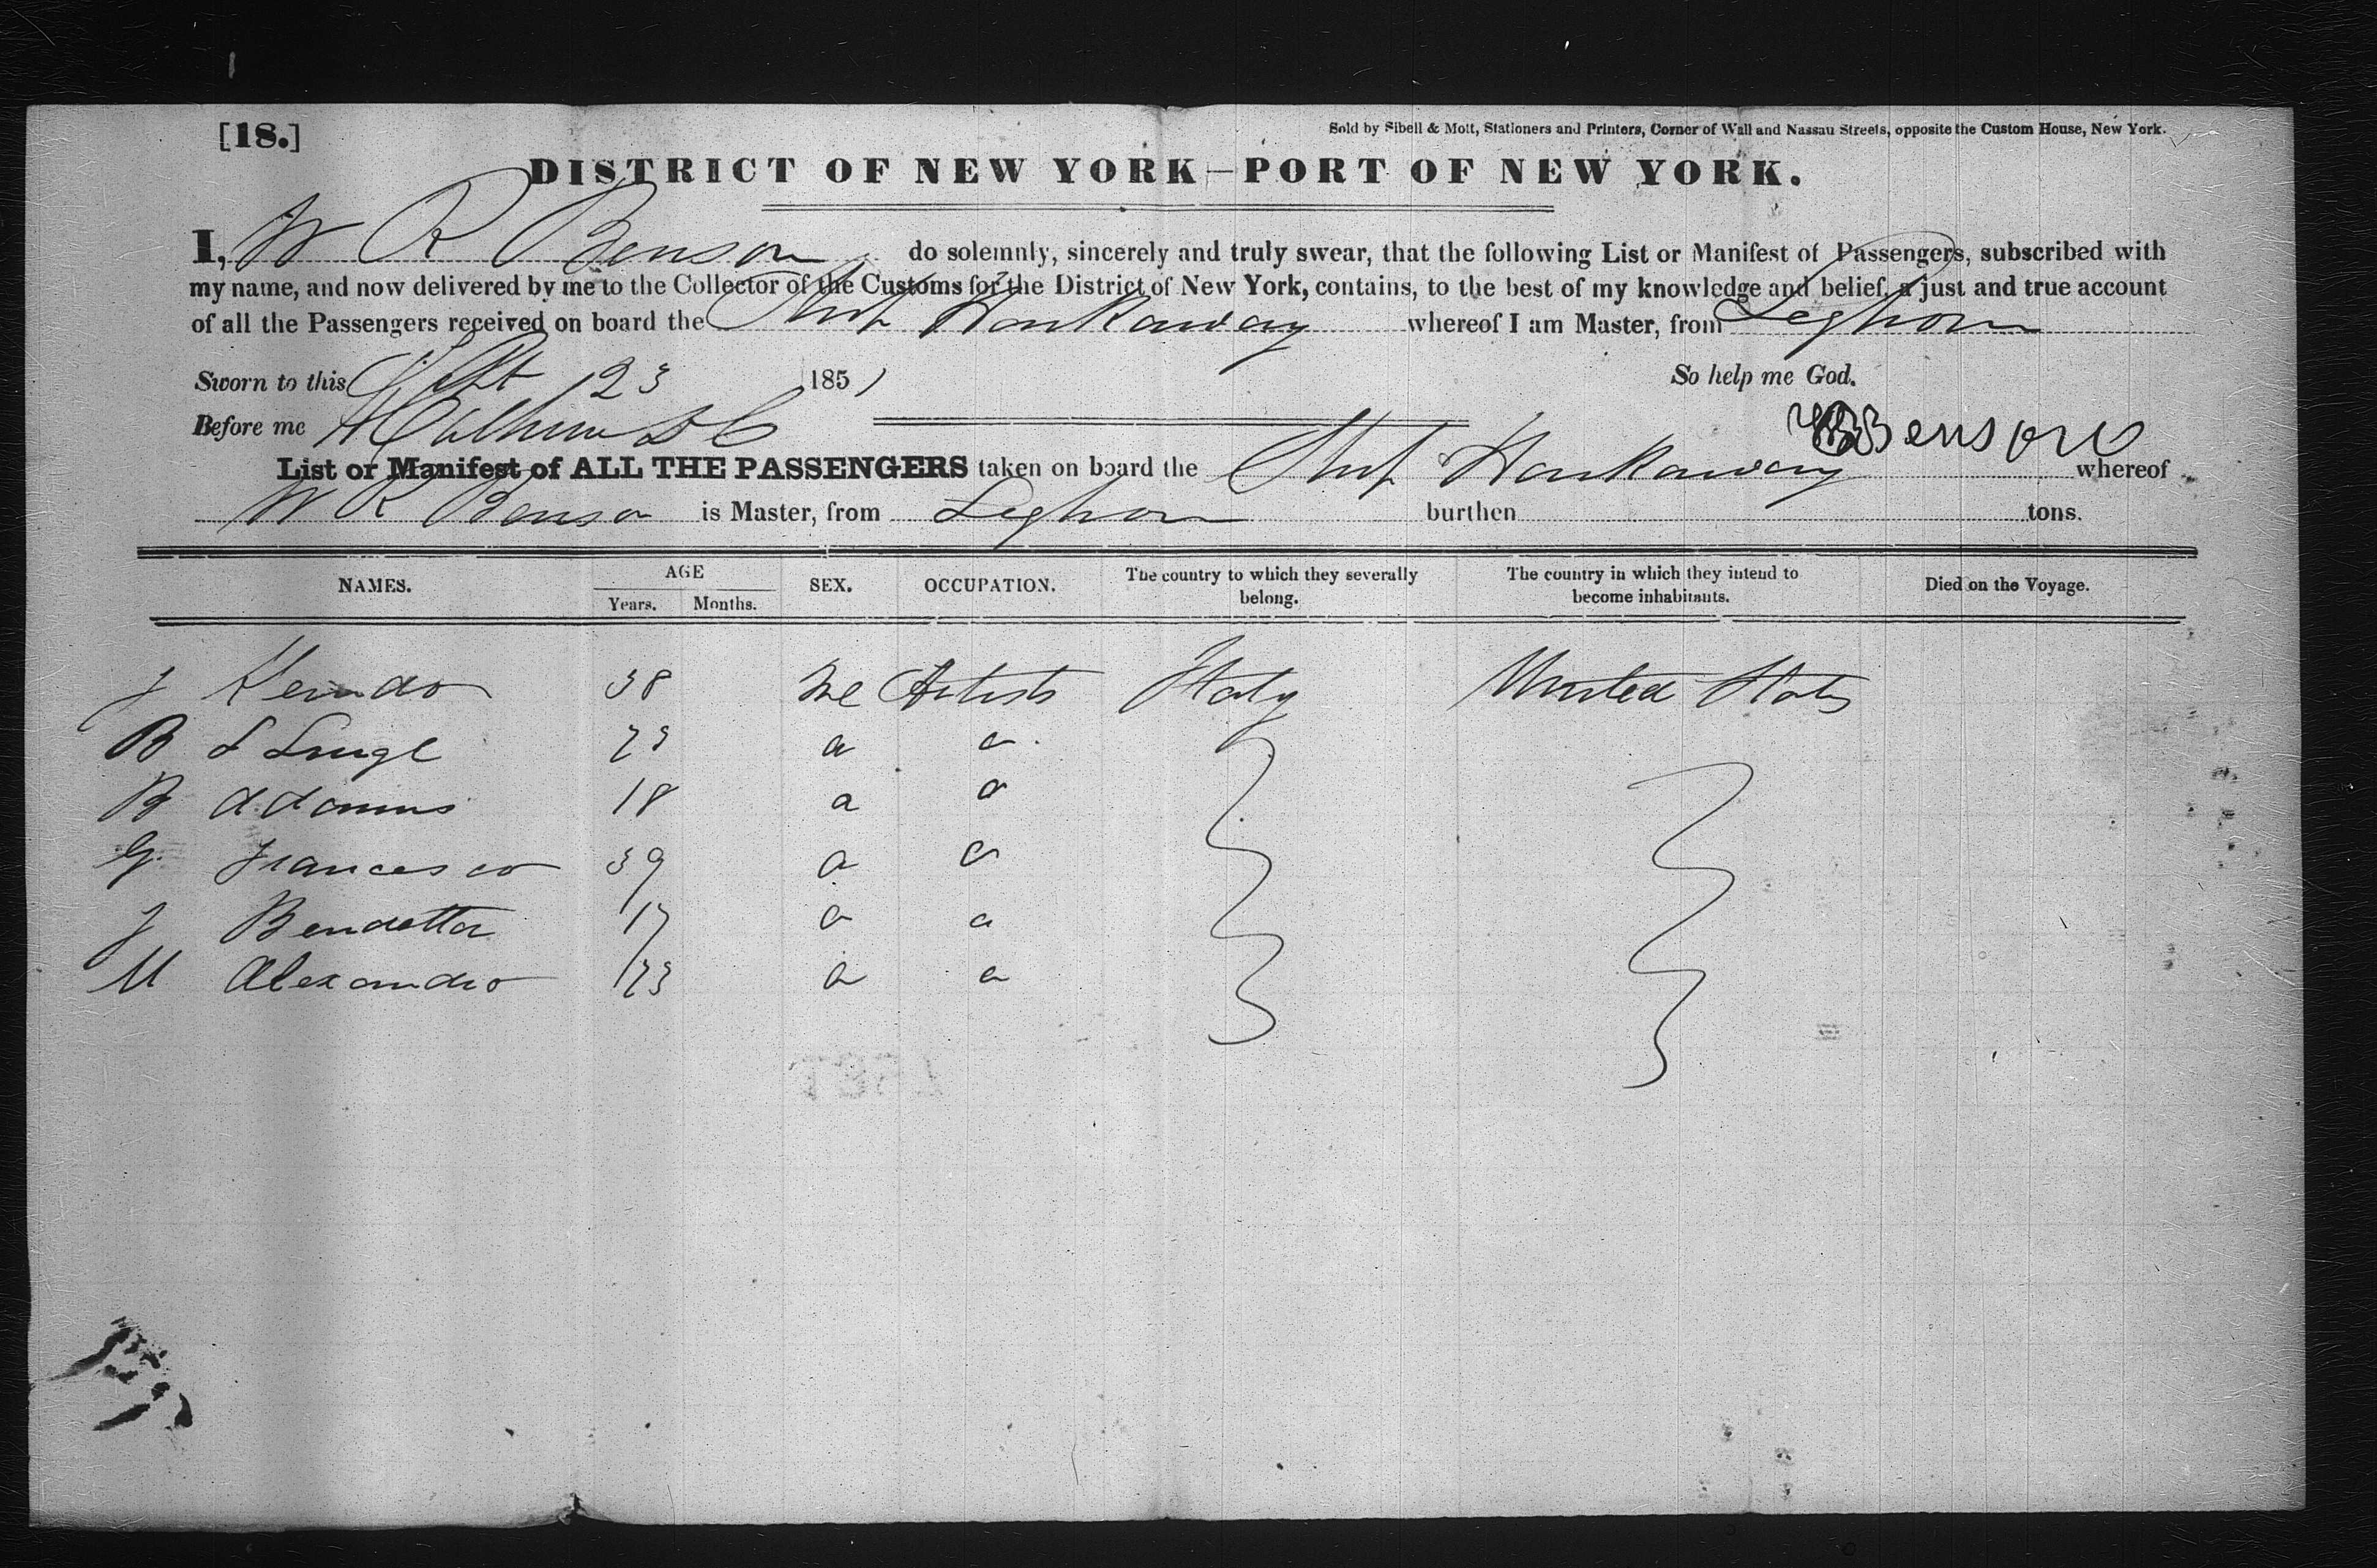 [18.]
Sold by Sibell & Mott, Stationers and Printers, Corner of Wall and Nassau Streets, opposite the Custom House, New York.
DISTRICT OF NEW YORK—PORT OF NEW YORK.
I, W R Benson do solemnly, sincerely and truly swear, that the following List or Manifest of Passengers, subscribed with
my name, and now delivered by me to the Collector of the Customs for the District of New York, contains, to the best of my knowledge and belief, a just and true account
of all the Passengers received on board the Ship Hankaway whereof I am Master, from Leghorn
Sworn to this Sept 23 1851 So help me God.
Before me
Benson
List or Manifest of ALL THE PASSENGERS taken on board the Ship Hankaway whereof
W R Benson is Master, from Leghorn burthen tons.
NAMES. AGE Years. Months. SEX. OCCUPATION. The country to which they severally belong. The country in which they intend to become inhabitants. Died on the Voyage.
J 38 Me Artists Italy United States
B L 23 a a
B Adamus 18 a a
G. Francesco 39 a a
J Bendetta 17 a a
M Alexandro 23 a a